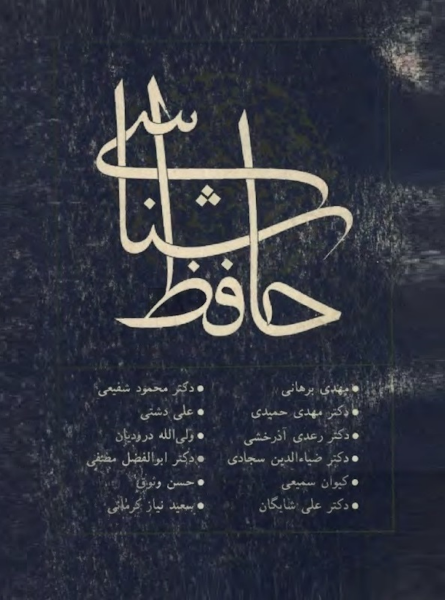 حافظ شناسی
مهدی برهانی
دکتر مهدی حمیدی
دکتر رعدی آذرخشی
دکتر ضیاءالدین سجادی
کیوان سمیعی
دکتر علی شایگان
دکتر محمود شفیعی
علی دشتی
ولی‌الله درودیان
دکتر ابوالفضل مصفی
حسن وثوق
سعید نیاز کرمانی